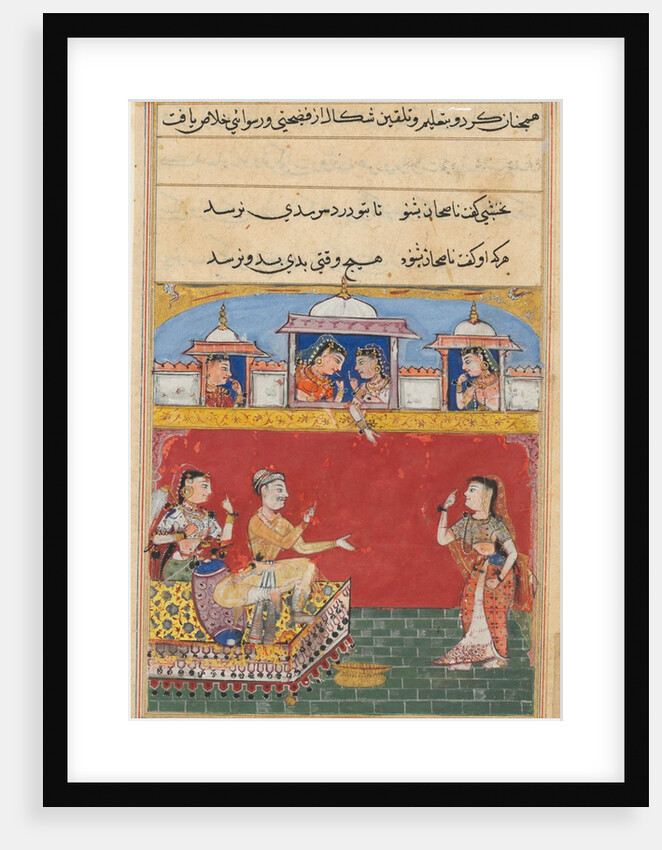 همچنان کرد و بتعلیم و تلقین شکال از فضیحتی و رسوائی خلاص یافت
نخشبی گفت ناصحان بشنو تا بتو درد سرمدی نرسد
هرکه او گفت ناصحان بشنود هیچ وقتی بدی بدو نرسد